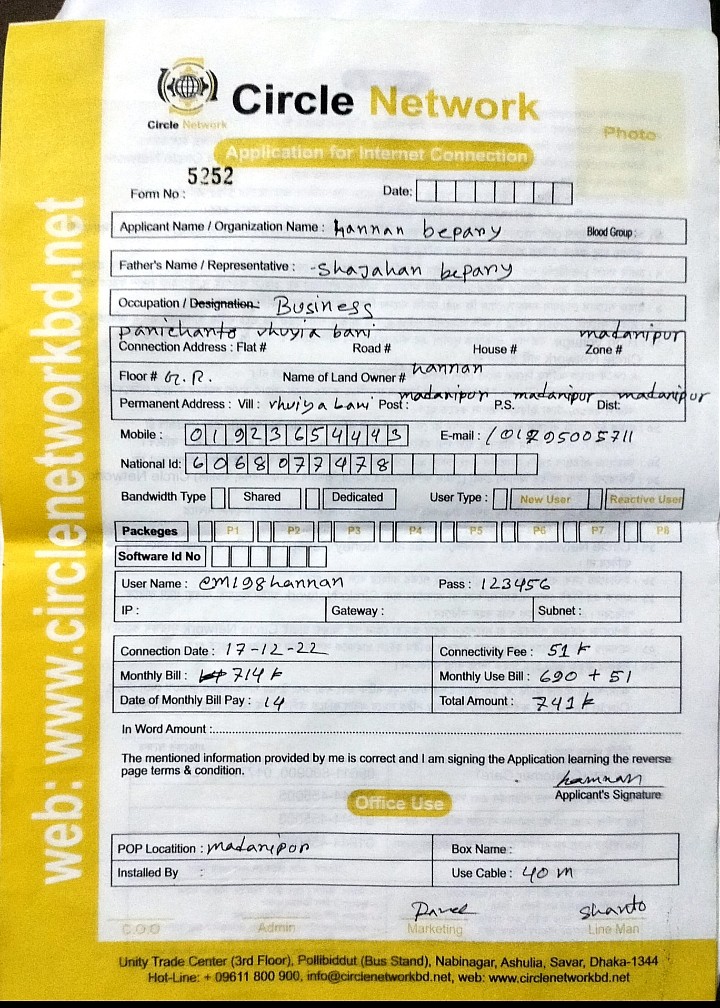 Circle Network
Circle Network
Photo
Application for Internet Connection
Form No : 5252
Date:
Applicant Name / Organization Name : Hannan bepary Blood Group :
Father's Name / Representative : Shajahan bepary
Occupation / Designation: Business
panichanto vhuyia bani madanipur
Connection Address : Flat # Road # House # Zone #
Floor # G.R. Name of Land Owner # hannan
Permanent Address : Vill : vhuiya bani Post : madanipur P.S. madanipur Dist: madanipur
Mobile : 01923654443 E-mail : 01295005711
National Id: 6068077478
Bandwidth Type Shared Dedicated User Type : New User Reactive User
Packeges P1 P2 P3 P4 P5 P6 P7 P8
Software Id No
User Name : cm198hannan Pass : 123456
IP : Gateway : Subnet :
Connection Date : 17-12-22 Connectivity Fee : 51 k
Monthly Bill : 714 k Monthly Use Bill : 690 + 51
Date of Monthly Bill Pay : 14 Total Amount : 741 k
In Word Amount :
The mentioned information provided by me is correct and I am signing the Application learning the reverse
page terms & condition.
hannan
Applicant's Signature
Office Use
POP Locatition : madanipur Box Name :
Installed By : Use Cable : 40 m
Shanto
C.O.O Admin Marketing Line Man
Unity Trade Center (3rd Floor), Pollibiddut (Bus Stand), Nabinagar, Ashulia, Savar, Dhaka-1344
Hot-Line: + 09611 800 900, info@circlenetworkbd.net, web: www.circlenetworkbd.net
web: www.circlenetworkbd.net